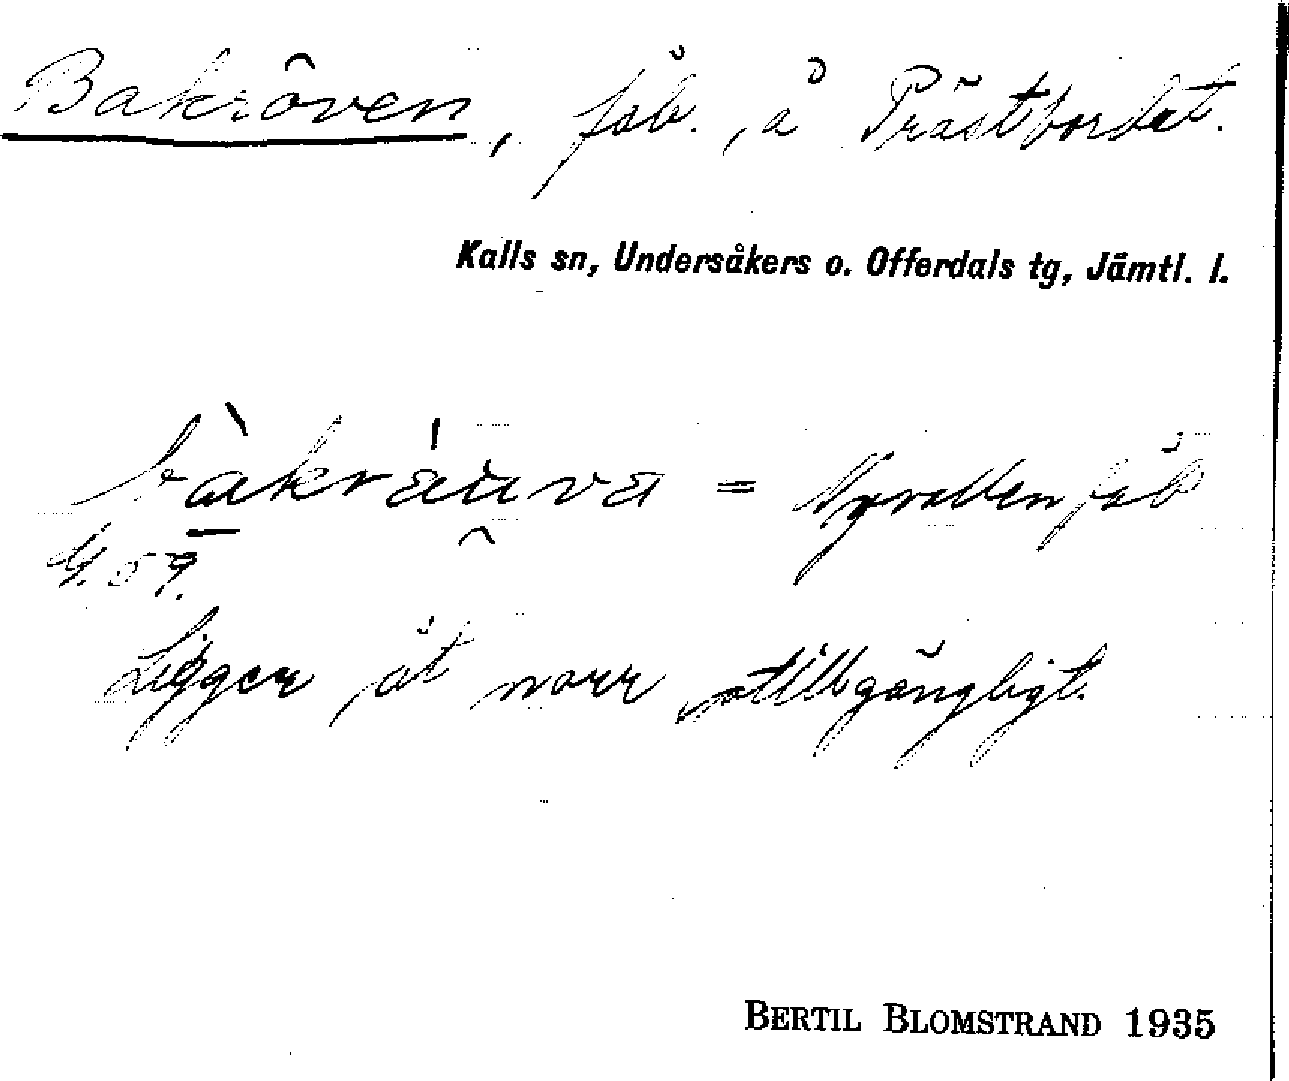 Bakröven, fäb., å Prästbordet.
Kalls sn, Undersåkers o. Offerdals tg, Jämtl. l.
bàkràuva = Nyvallen fäb
4.59.
Ligger åt norr otillgängligt.
BERTIL BLOMSTRAND 1935